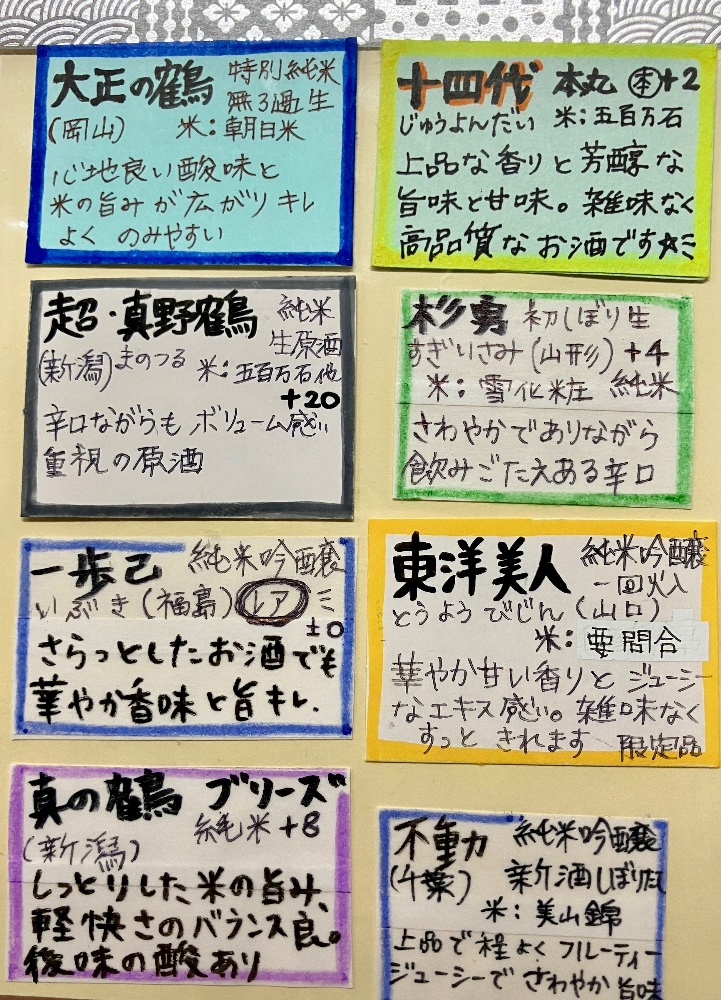 大正の鶴 特別純米
無ろ過生
(岡山) 米:朝日米
心地良い酸味と
米の旨みが広がりキレ
よく のみやすい
十四代 本丸 本+2
じゅうよんだい 米:五百万石
上品な香りと芳醇な
旨味と甘味。雑味なく
高品質なお酒です☆ミ
超・真野鶴 純米
生原酒
(新潟)まのつる 米:五百万石他
+20
辛口ながらも ボリューム感い
重視の原酒
杉勇 初しぼり生
すぎいさみ(山形)+4
米:雪化粧 純米
さわやかでありながら
飲みごたえある辛口
一歩己 純米吟醸
いぶき(福島)レア ミ
±0
さらっとしたお酒でも
華やか香味と旨キレ.
東洋美人 純米吟醸
一回火入
とうようびじん(山口)
米:要問合
華やか甘い香りとジューシー
なエキス感い。雑味なく
すっと きれます 限定品
真の鶴 ブリーズ
純米+8
(新潟)
しっとりした米の旨み、
軽快さのバランス良。
後味の酸あり
不動 純米吟醸
(千葉) 新酒しぼりたて
米:美山錦
上品で程よくフルーティー
ジューシーでさわやか旨味